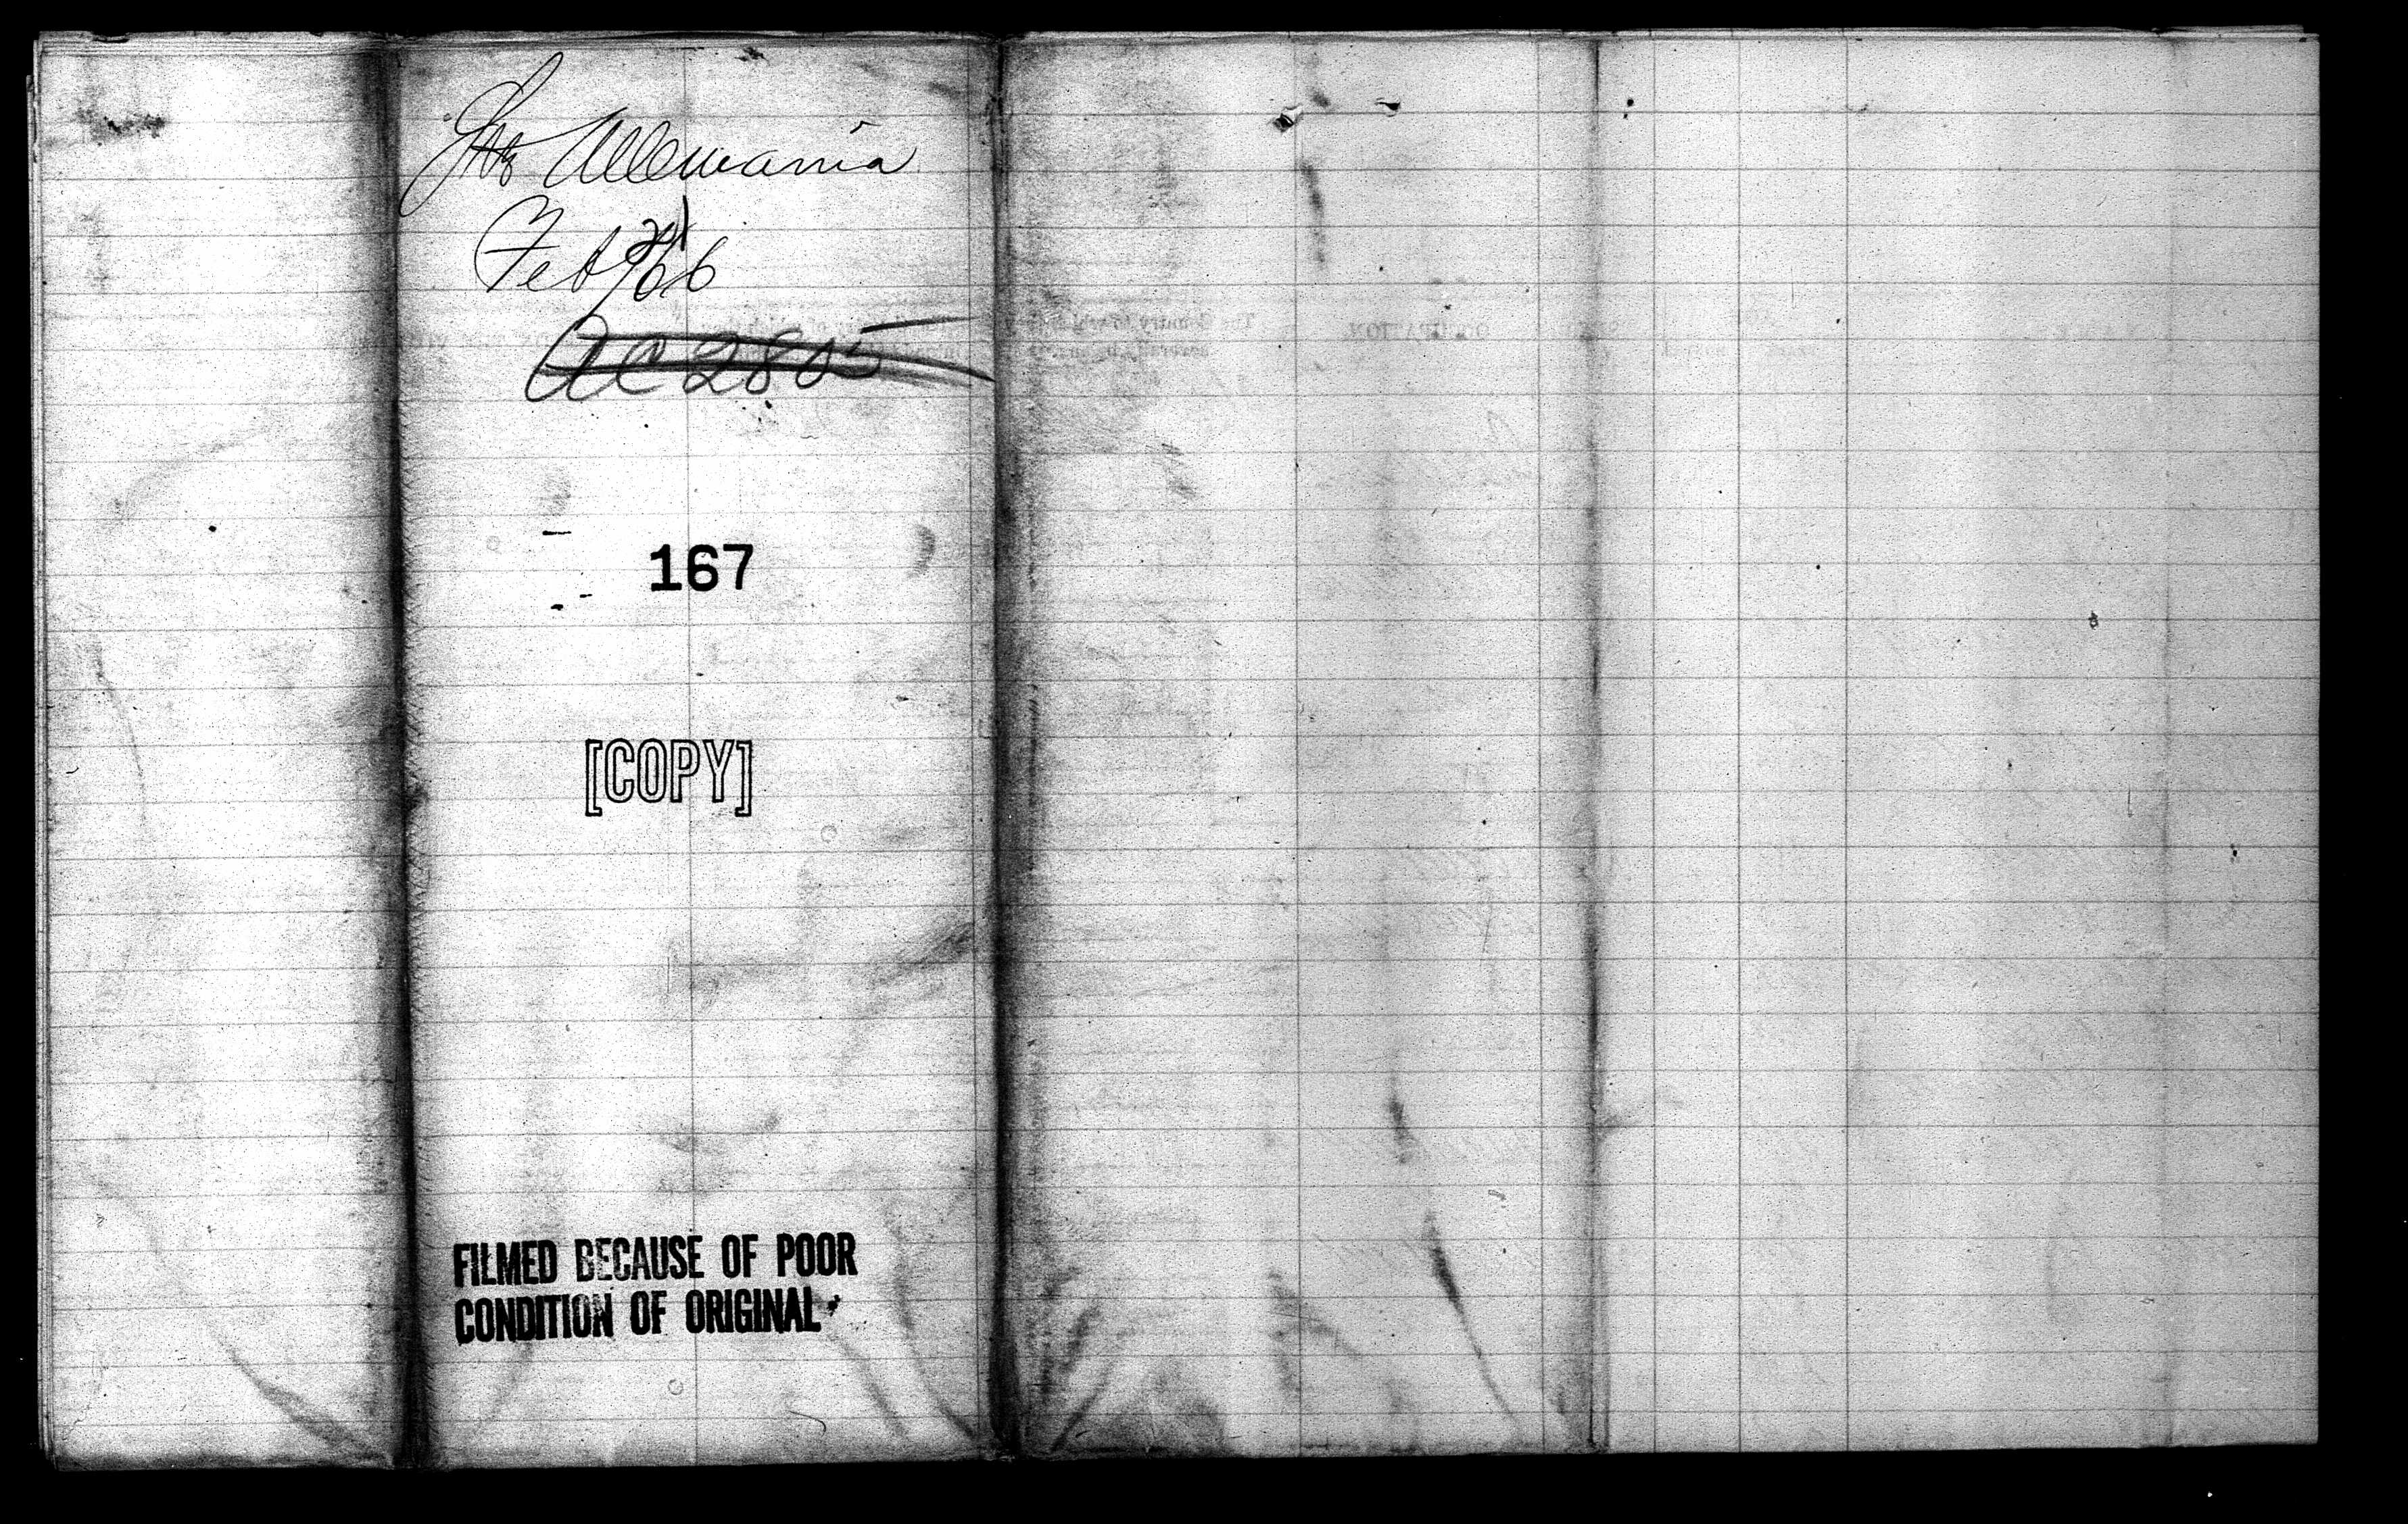 Str Allemania
Feb 21/66
AC 2805
167
[COPY]
FILMED BECAUSE OF POOR
CONDITION OF ORIGINAL
OCCUPATION